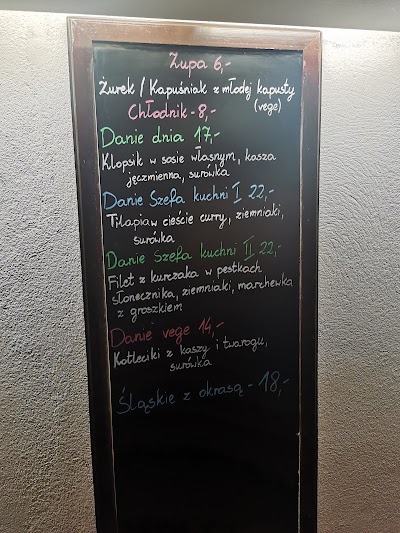 Zupa 6,-
Żurek / Kapuśniak z młodej kapusty
(vege)
Chłodnik - 8,-
Danie dnia 17,-
Klopsik w sosie własnym, kasza
jęczmienna, surówka
Danie Szefa kuchni I 22,-
Tilapia w cieście curry, ziemniaki,
surówka
Danie Szefa kuchni II 22,-
Filet z kurczaka w pestkach
słonecznika, ziemniaki, marchewka
z groszkiem
Danie vege 14,-
Kotleciki z kaszy i twarogu,
surówka
Śląskie z okrasą - 18,-